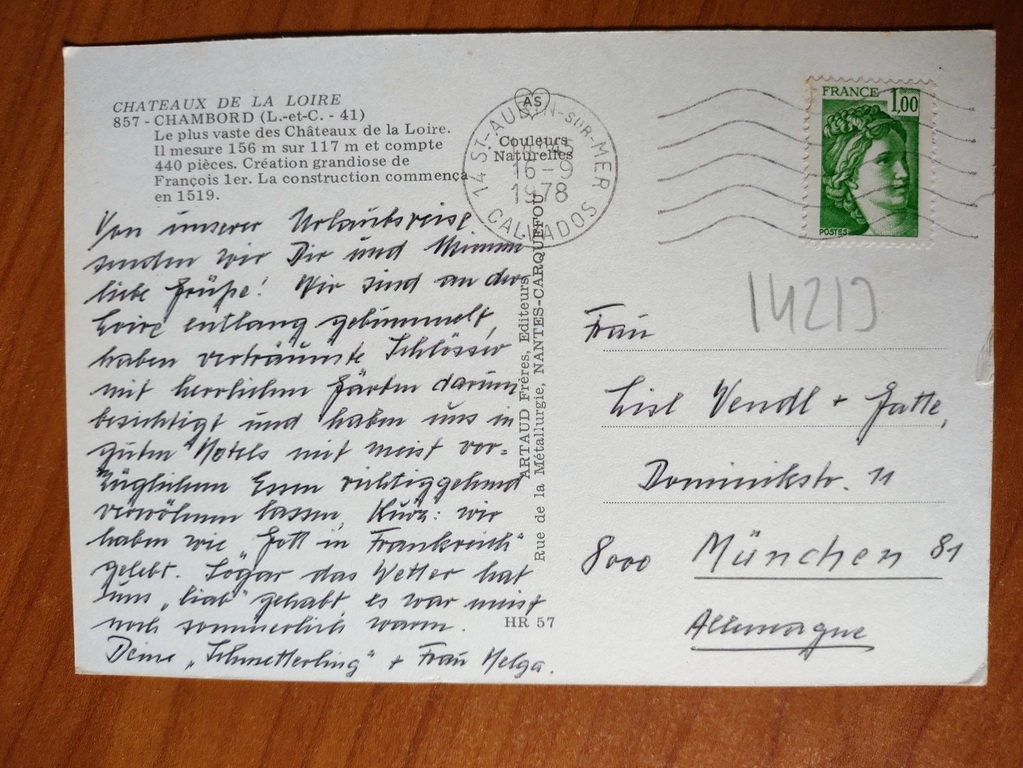 CHATEAUX DE LA LOIRE
857 - CHAMBORD (L.-et-C. - 41)
Le plus vaste des Châteaux de la Loire.
Il mesure 156 m sur 117 m et compte
440 pièces. Création grandiose de
François 1er. La construction commença
en 1519.
Von unserer Urlaubsreise
senden wir Dir und
liebe Grüße! Wir sind an der
Loire entlang gebummelt,
haben verträumte Schlösser
mit herrlichen Gärten darum
besichtigt und haben uns in
guten Hotels mit meist vor=
züglichem Essen richtiggehend
verwöhnen lassen. Kurz: wir
haben wie „Gott in Frankreich"
gelebt. Sogar das Wetter hat
uns „liab" gehabt, es war meist
noch sommerlich warm.
Deine „Schmetterling" + Frau Helga.
AS
Couleurs
Naturelles
14 ST-AUBIN-SUR-MER
16-9
1978
CALVADOS
ARTAUD Frères, Editeurs
Rue de la Métallurgie, NANTES-CARQUEFOU
HR 57
FRANCE 1,00
POSTES
Frau
Lisl Vendl + Gatte,
Dominikstr. 11
8000 München 81
Allemagne